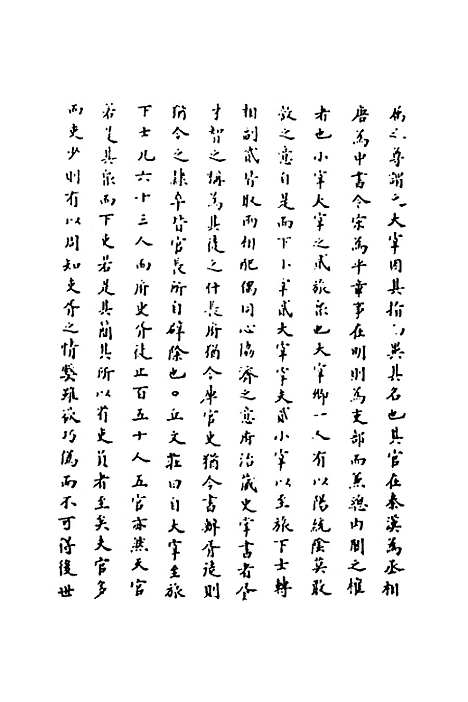 為之尊謂之大宰因其指而異其名也其官在秦漢為丞相
唐為中書令宋為平章事在明則為吏部而兼總內閣之權
者也小宰大宰之貳旅眾也大宰卿一人有以陽統陰莫敢
敵之意自是而下小宰貳大宰宰夫貳小宰以至旅下士轉
相副貳皆取兩相配偶同心協濟之意府治藏史掌書者胥
才智之稱為其徒之什長府猶今庫官史猶今書辦胥徒則
猶今之隸卒皆官長所自辟除也○丘文莊曰自大宰至旅
下士凡六十三人而府史胥徒止百五十人五官亦然夫官
若是其眾而下吏若是其簡其所以省吏員者至矣夫官多
而吏少則有以周知吏胥之情弊雖欲巧偽而不可得後世